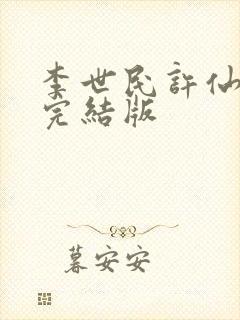 李世民許仙
完結版
暮安安